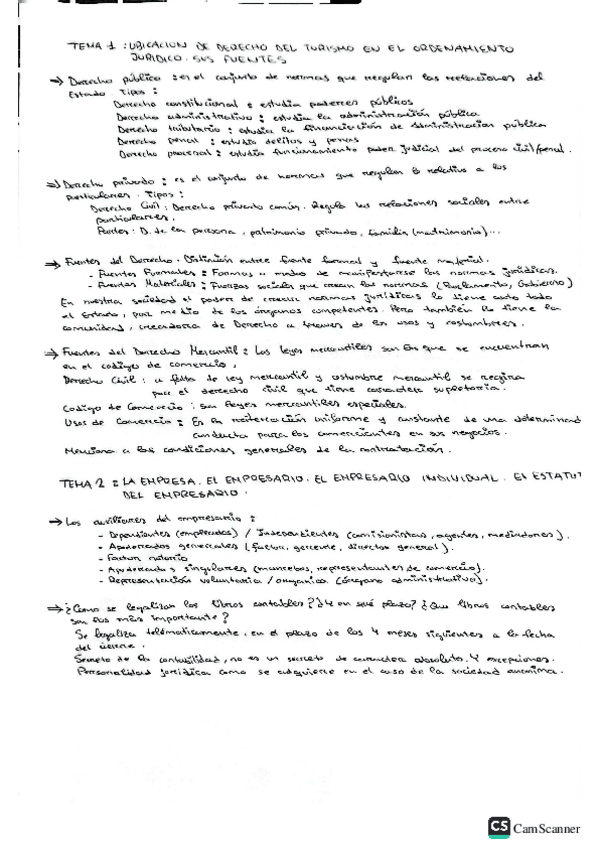 TEMA 1: UBICACION DE DERECHO DEL TURISMO EN EL ORDENAMIENTO
JURIDICO. SUS FUENTES
→ Derecho público: es el conjunto de normas que regulan las relaciones del
Estado. Tipos:
Derecho constitucional: estudia poderes públicos
Derecho administrativo: estudia la administración pública
Derecho tributario: estudia la financiación de Administración pública
Derecho penal: estudia delitos y penas
Derecho procesal: estudia funcionamiento poder judicial del proceso civil/penal.
→ Derecho privado: es el conjunto de normas que regulan lo relativo a los
particulares. Tipos:
Derecho Civil: Derecho privado común. Regula las relaciones sociales entre
particulares.
Partes: D. de la persona, patrimonio privado, familia (matrimonio)...
→ Fuentes del Derecho. Distinción entre fuente formal y fuente material.
- Fuentes Formales: Formas o modos de manifestarse las normas jurídicas.
- Fuentes Materiales: Fuerzas sociales que crean las normas (Parlamento, Gobierno)
En nuestra sociedad el poder de crear normas jurídicas lo tiene ante todo
el Estado, por medio de los órganos competentes. Pero también lo tiene la
comunidad, creadora de Derecho a traves de los usos y costumbres.
→ Fuentes del Derecho Mercantil: Las leyes mercantiles son las que se encuentran
en el codigo de comercio,
Derecho Civil: a falta de ley mercantil y costumbre mercantil se regira
por el derecho civil que tiene caracter supletorio.
Codigo de Comercio: Son leyes mercantiles especiales.
Usos de Comercio: Es la reiteración uniforme y constante de una determinad
conducta para los comerciantes en sus negocios.
Menciona a las condiciones generales de la contratación.
TEMA 2: LA EMPRESA. EL EMPRESARIO. EL EMPRESARIO INDIVIDUAL. EL ESTATUT
DEL EMPRESARIO.
→ Los auxiliares del empresario:
- Dependientes (empleados) / Independientes (comisionistas, agentes, mediadores).
- Apoderados generales (factor, gerente, director general).
- Factor notorio
- Apoderados singulares (mancebos, representantes de comercio).
- Representación voluntaria / organica (órgano administrativo).
→ ¿Como se legalizan los libros contables? ¿Y en qué plazo? ¿Que libros contables
son los más importantes?
Se legaliza telématicamente, en el plazo de los 4 meses siguientes a la fecha
del cierre.
Secreto de la contabilidad, no es un secreto de caracter absoluto. Y excepciones.
Personalidad jurídica como se adquiere en el caso de la sociedad anonima.
CS CamScanner